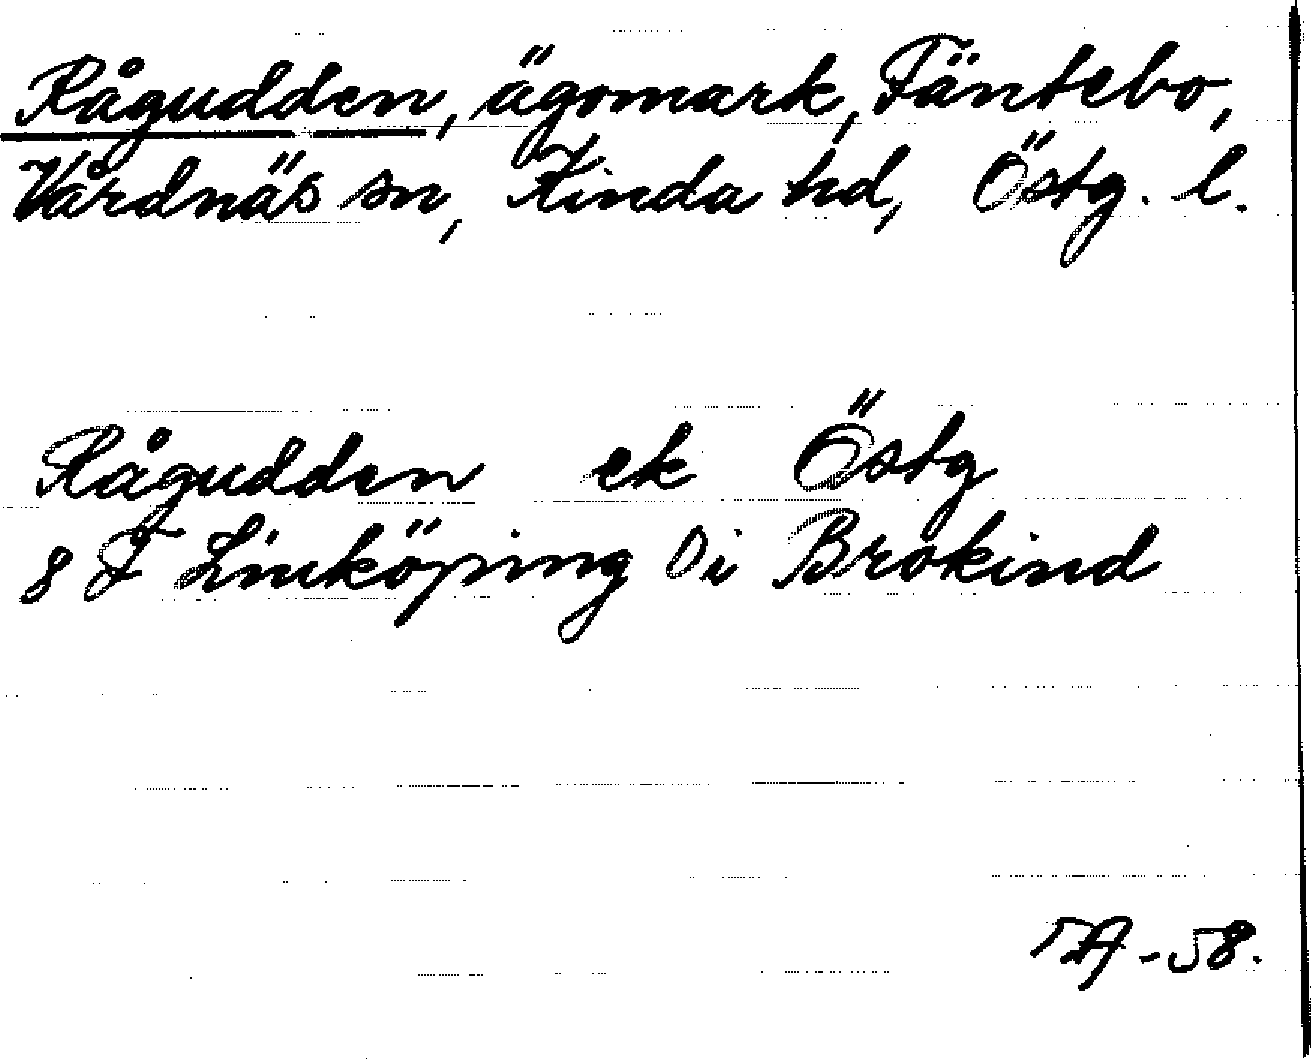 Rågudden, ägomark, Fäntebo,
Vårdnäs sn, Kinda hd, Östg. l.
Rågudden ek Östg
8 F Linköping Si Brokind
TA-58.